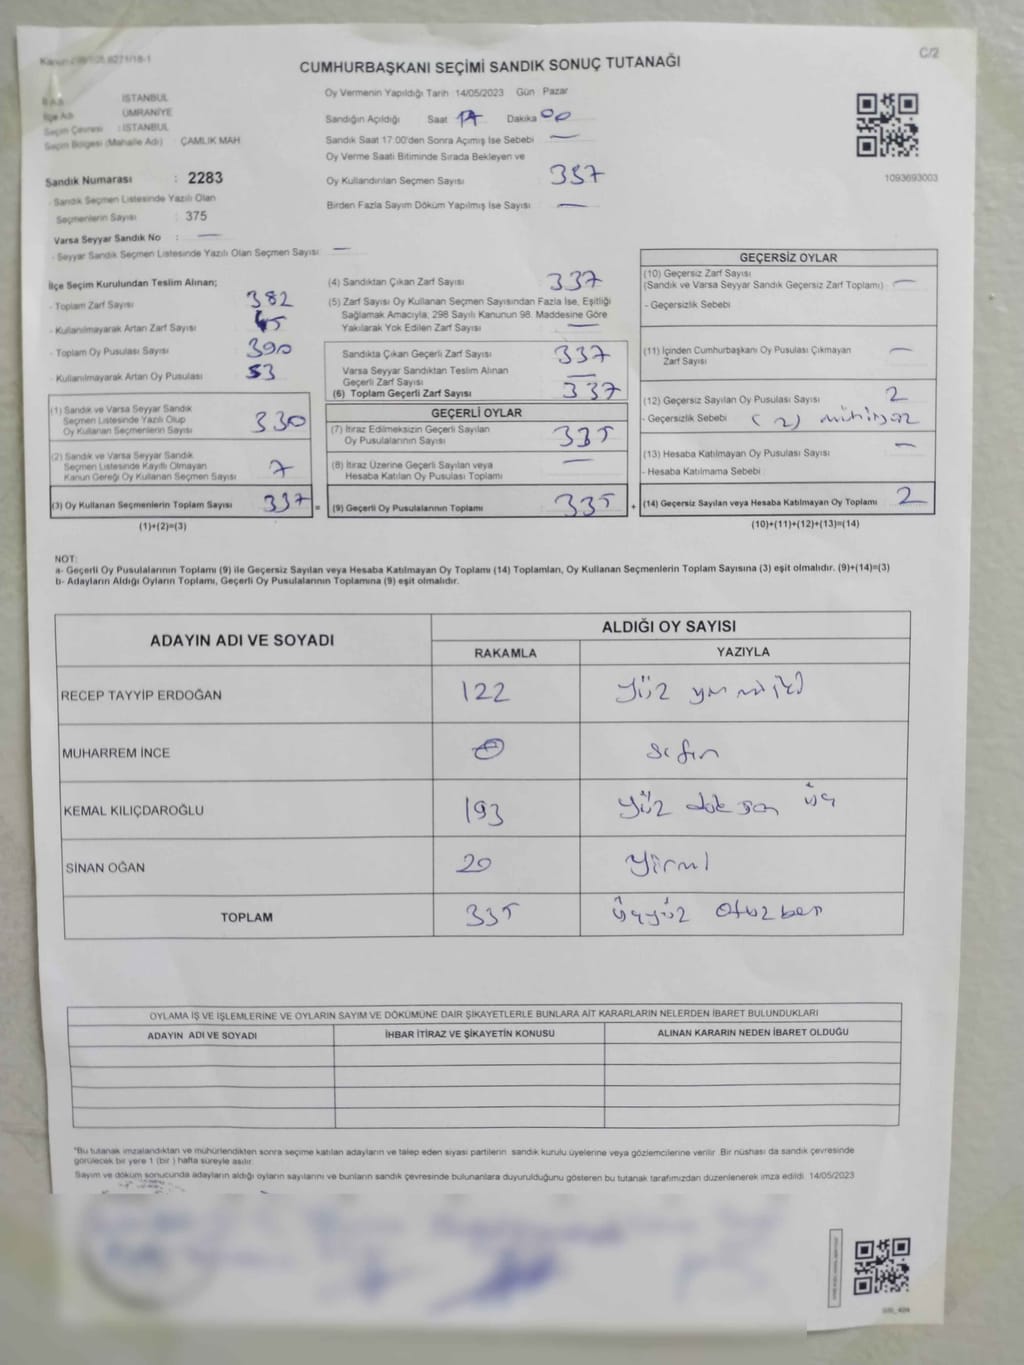 C/2
CUMHURBAŞKANI SEÇİMİ SANDIK SONUÇ TUTANAĞI
İSTANBUL
İlçe Adı ÜMRANİYE
Seçim Çevresi : İSTANBUL
Seçim Bölgesi (Mahalle Adı) ÇAMLIK MAH
Sandık Numarası : 2283
- Sandık Seçmen Listesinde Yazılı Olan
Seçmenlerin Sayısı : 375
Varsa Seyyar Sandık No : —
- Seyyar Sandık Seçmen Listesinde Yazılı Olan Seçmen Sayısı: —
Oy Vermenin Yapıldığı Tarih 14/05/2023 Gün Pazar
Sandığın Açıldığı Saat 17 Dakika 00
Sandık Saat 17.00'den Sonra Açımış İse Sebebi —
Oy Verme Saati Bitiminde Sırada Bekleyen ve
Oy Kullandırılan Seçmen Sayısı 337
Birden Fazla Sayım Döküm Yapılmış İse Sayısı —
1093693003
İlçe Seçim Kurulundan Teslim Alınan;
- Toplam Zarf Sayısı 382
- Kullanılmayarak Artan Zarf Sayısı 45
- Toplam Oy Pusulası Sayısı 390
- Kullanılmayarak Artan Oy Pusulası 53
(1) Sandık ve Varsa Seyyar Sandık
Seçmen Listesinde Yazılı Olup
Oy Kullanan Seçmenlerin Sayısı 330
(2) Sandık ve Varsa Seyyar Sandık
Seçmen Listesinde Kayıtlı Olmayan
Kanun Gereği Oy Kullanan Seçmen Sayısı 7
(3) Oy Kullanan Seçmenlerin Toplam Sayısı 337 =
(1)+(2)=(3)
(4) Sandıktan Çıkan Zarf Sayısı 337
(5) Zarf Sayısı Oy Kullanan Seçmen Sayısından Fazla İse, Eşitliği
Sağlamak Amacıyla, 298 Sayılı Kanunun 98. Maddesine Göre
Yakılarak Yok Edilen Zarf Sayısı —
Sandıkta Çıkan Geçerli Zarf Sayısı 337
Varsa Seyyar Sandıktan Teslim Alınan
Geçerli Zarf Sayısı —
(6) Toplam Geçerli Zarf Sayısı 337
GEÇERLİ OYLAR
(7) İtiraz Edilmeksizin Geçerli Sayılan
Oy Pusulalarının Sayısı 335
(8) İtiraz Üzerine Geçerli Sayılan veya
Hesaba Katılan Oy Pusulası Toplamı —
(9) Geçerli Oy Pusulalarının Toplamı 335 +
GEÇERSİZ OYLAR
(10) Geçersiz Zarf Sayısı
(Sandık ve Varsa Seyyar Sandık Geçersiz Zarf Toplamı) —
- Geçersizlik Sebebi
(11) İçinden Cumhurbaşkanı Oy Pusulası Çıkmayan
Zarf Sayısı —
(12) Geçersiz Sayılan Oy Pusulası Sayısı 2
- Geçersizlik Sebebi (2) mühürsüz
(13) Hesaba Katılmayan Oy Pusulası Sayısı —
- Hesaba Katılmama Sebebi
(14) Geçersiz Sayılan veya Hesaba Katılmayan Oy Toplamı 2
(10)+(11)+(12)+(13)=(14)
NOT:
a- Geçerli Oy Pusulalarının Toplamı (9) ile Geçersiz Sayılan veya Hesaba Katılmayan Oy Toplamı (14) Toplamları, Oy Kullanan Seçmenlerin Toplam Sayısına (3) eşit olmalıdır. (9)+(14)=(3)
b- Adayların Aldığı Oyların Toplamı, Geçerli Oy Pusulalarının Toplamına (9) eşit olmalıdır.
ADAYIN ADI VE SOYADI ALDIĞI OY SAYISI
RAKAMLA YAZIYLA
RECEP TAYYİP ERDOĞAN 122 Yüz yirmi iki
MUHARREM İNCE 0 sıfır
KEMAL KILIÇDAROĞLU 193 Yüz doksan üç
SİNAN OĞAN 20 Yirmi
TOPLAM 335 üçyüz otuzbeş
OYLAMA İŞ VE İŞLEMLERİNE VE OYLARIN SAYIM VE DÖKÜMÜNE DAİR ŞİKAYETLERLE BUNLARA AİT KARARLARIN NELERDEN İBARET BULUNDUKLARI
ADAYIN ADI VE SOYADI İHBAR İTİRAZ VE ŞİKAYETİN KONUSU ALINAN KARARIN NEDEN İBARET OLDUĞU
*Bu tutanak imzalandıktan ve mühürlendikten sonra seçime katılan adayların ve talep eden siyasi partilerin sandık kurulu üyelerine veya gözlemcilerine verilir. Bir nüshası da sandık çevresinde
görülecek bir yere 1 (bir ) hafta süreyle asılır.
Sayım ve döküm sonucunda adayların aldığı oyların sayılarını ve bunların sandık çevresinde bulunanlara duyurulduğunu gösteren bu tutanak tarafımızdan düzenlenerek imza edildi. 14/05/2023